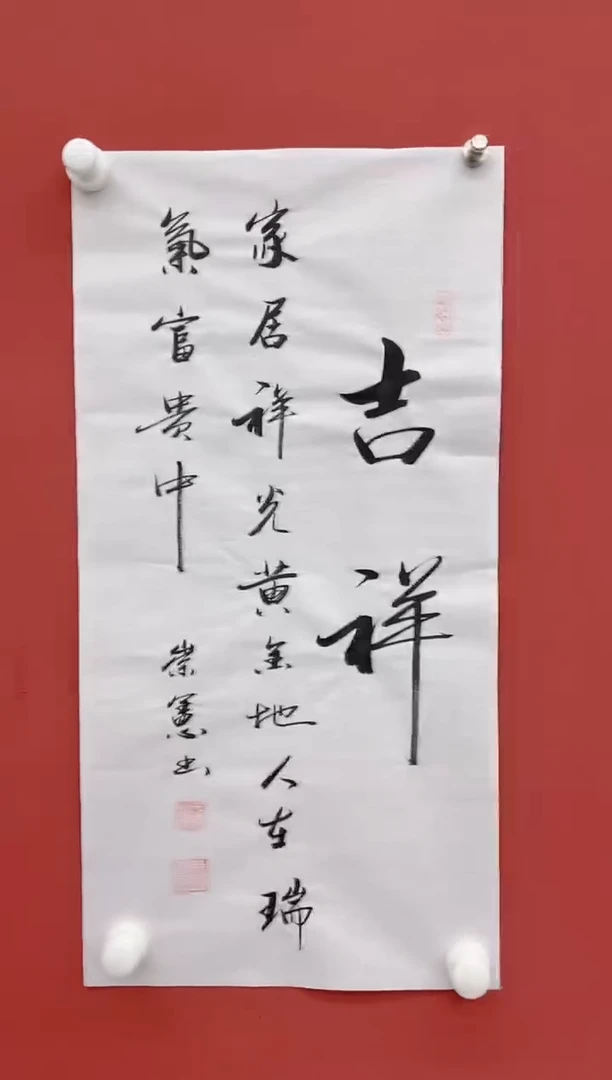 吉祥
家居祥光黄金地人在瑞
氣富贵中
崇憲书